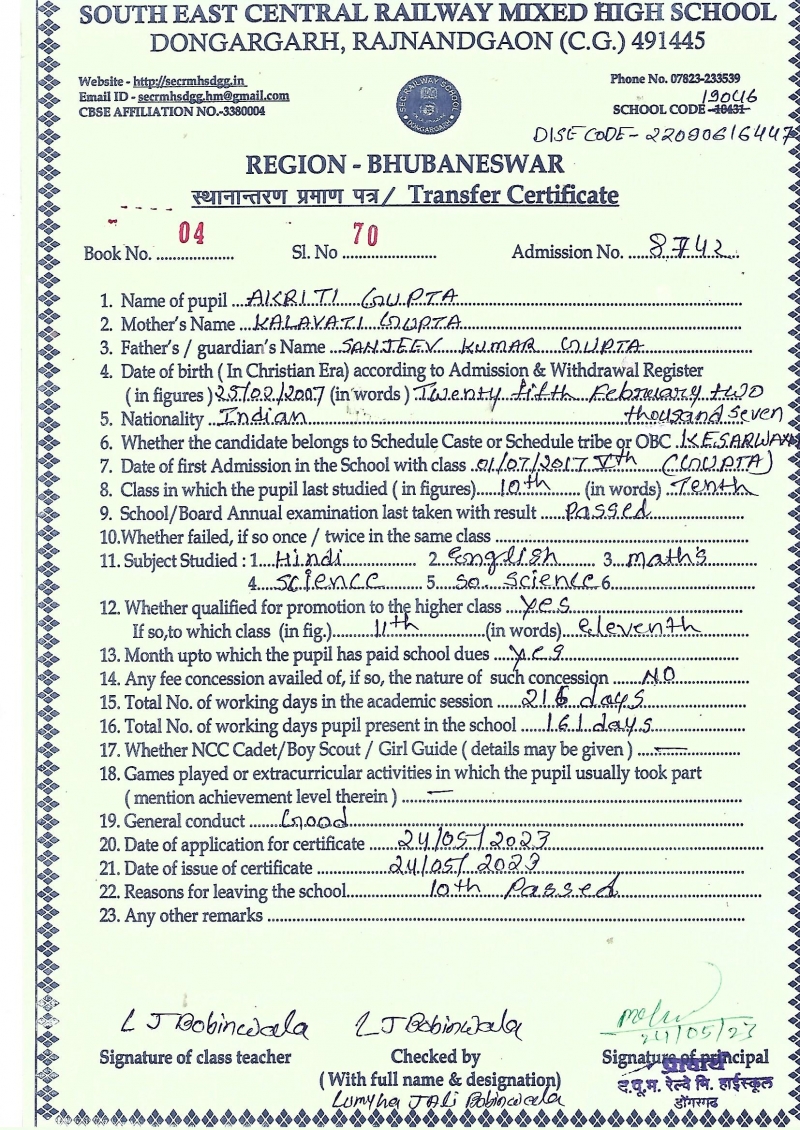 SOUTH EAST CENTRAL RAILWAY MIXED HIGH SCHOOL
DONGARGARH, RAJNANDGAON (C.G.) 491445
Website - http://secrmhsdgg.in
Email ID - secrmhsdgg.hm@gmail.com
CBSE AFFILIATION NO.-3380004
SEC RAILWAY SCHOOL
DONGARGARH
Phone No. 07823-233539
19046
SCHOOL CODE -10431-
DISE CODE - 22090616447
REGION - BHUBANESWAR
स्थानान्तरण प्रमाण पत्र / Transfer Certificate
Book No. 04 Sl. No 70 Admission No. 8742
1. Name of pupil AKRITI GUPTA
2. Mother's Name KALAVATI GUPTA
3. Father's / guardian's Name SANJEEV KUMAR GUPTA
4. Date of birth ( In Christian Era) according to Admission & Withdrawal Register
( in figures ) 25/02/2007 (in words ) Twenty fifth February two
5. Nationality Indian thousand seven
6. Whether the candidate belongs to Schedule Caste or Schedule tribe or OBC KESARWANI
7. Date of first Admission in the School with class 01/07/2017 Vth (GUPTA)
8. Class in which the pupil last studied ( in figures) 10th (in words) Tenth
9. School/Board Annual examination last taken with result Passed
10.Whether failed, if so once / twice in the same class
11. Subject Studied : 1 Hindi 2 English 3 maths
4 science 5 so. science 6
12. Whether qualified for promotion to the higher class yes
If so,to which class (in fig.) 11th (in words) eleventh
13. Month upto which the pupil has paid school dues yes
14. Any fee concession availed of, if so, the nature of such concession NO
15. Total No. of working days in the academic session 216 days
16. Total No. of working days pupil present in the school 161 days
17. Whether NCC Cadet/Boy Scout / Girl Guide ( details may be given ) —
18. Games played or extracurricular activities in which the pupil usually took part
( mention achievement level therein ) —
19. General conduct Good
20. Date of application for certificate 24/05/2023
21. Date of issue of certificate 24/05/2023
22. Reasons for leaving the school 10th Passed
23. Any other remarks
L J Bobinwala L J Bobinwala
24/05/23
Signature of class teacher Checked by Signature of principal
(With full name & designation)
प्राचार्य
द.पू.म. रेल्वे मि. हाईस्कूल
डोंगरगढ़
Bobinwala